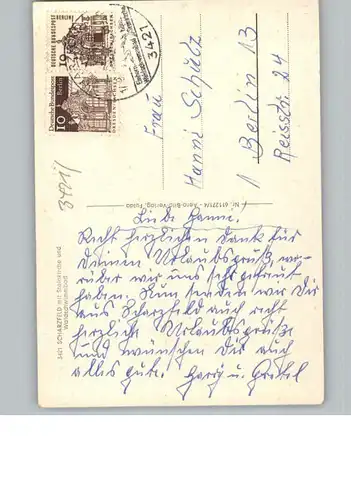 DEUTSCHE BUNDESPOST
BERLIN
10
Deutsche Bundespost
Berlin
10
3421
3421
Frau
Hanni Schulz
1 Berlin 13
Reisstr. 24
Nr. 61127/14 Aero-Bild-Verlag, Fulda
3421 SCHARZFELD mit Steinkirche und
Waldschwimmbad
Liebe Hanni!
Recht herzlichen Dank für
Deinen Urlaubsgruß wo-
rüber wir uns sehr gefreut
haben. Nun senden wir Dir
aus Scharzfeld auch recht
herzliche Urlaubsgrüße
und wünschen Dir auch
alles gute. u. Gretel